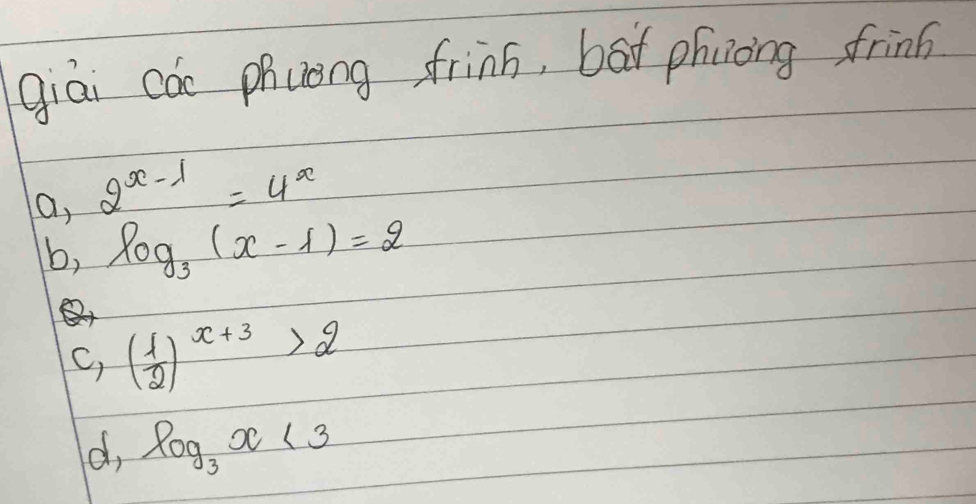 giải các phương trình, bất phương trình
a, 2^{x-1} = 4^x
b, log_3 (x-1) = 2
c, (1/2)^{x+3} > 2
d, log_3 x < 3